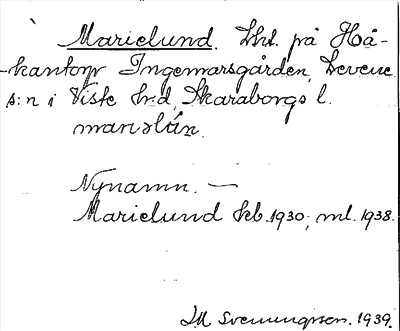 Marielund. Lht. på Hå-
-kantorp Ingemarsgården, Levene
s:n i Viste hrd, Skaraborgs l.
Nynamn. —
Marielund kb. 1930; ml. 1938.
M Svenungsson. 1939.